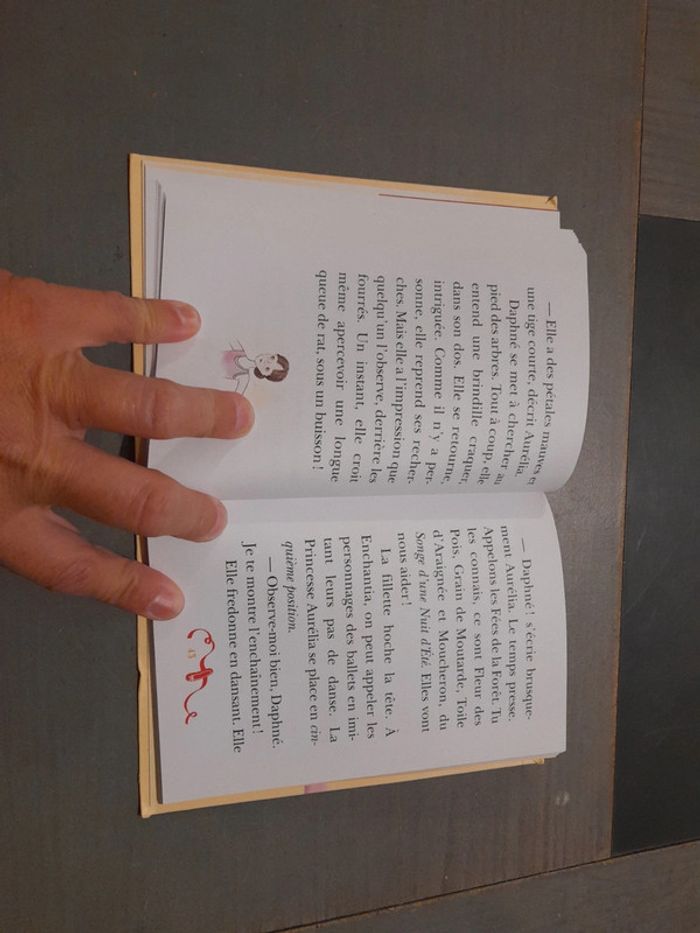 — Elle a des pétales mauves et
une tige courte, décrit Aurélia.
Daphné se met à chercher au
pied des arbres. Tout à coup, elle
entend une brindille craquer,
dans son dos. Elle se retourne,
intriguée. Comme il n'y a per-
sonne, elle reprend ses recher-
ches. Mais elle a l'impression que
quelqu'un l'observe, derrière les
fourrés. Un instant, elle croit
même apercevoir une longue
queue de rat, sous un buisson !
— Daphné ! s'écrie brusque-
ment Aurélia. Le temps presse.
Appelons les Fées de la Forêt. Tu
les connais, ce sont Fleur des
Pois, Grain de Moutarde, Toile
d'Araignée et Moucheron, du
Songe d'une Nuit d'Été. Elles vont
nous aider !
La fillette hoche la tête. À
Enchantia, on peut appeler les
personnages des ballets en imi-
tant leurs pas de danse. La
Princesse Aurélia se place en cin-
quième position.
— Observe-moi bien, Daphné.
Je te montre l'enchaînement !
Elle fredonne en dansant. Elle
43